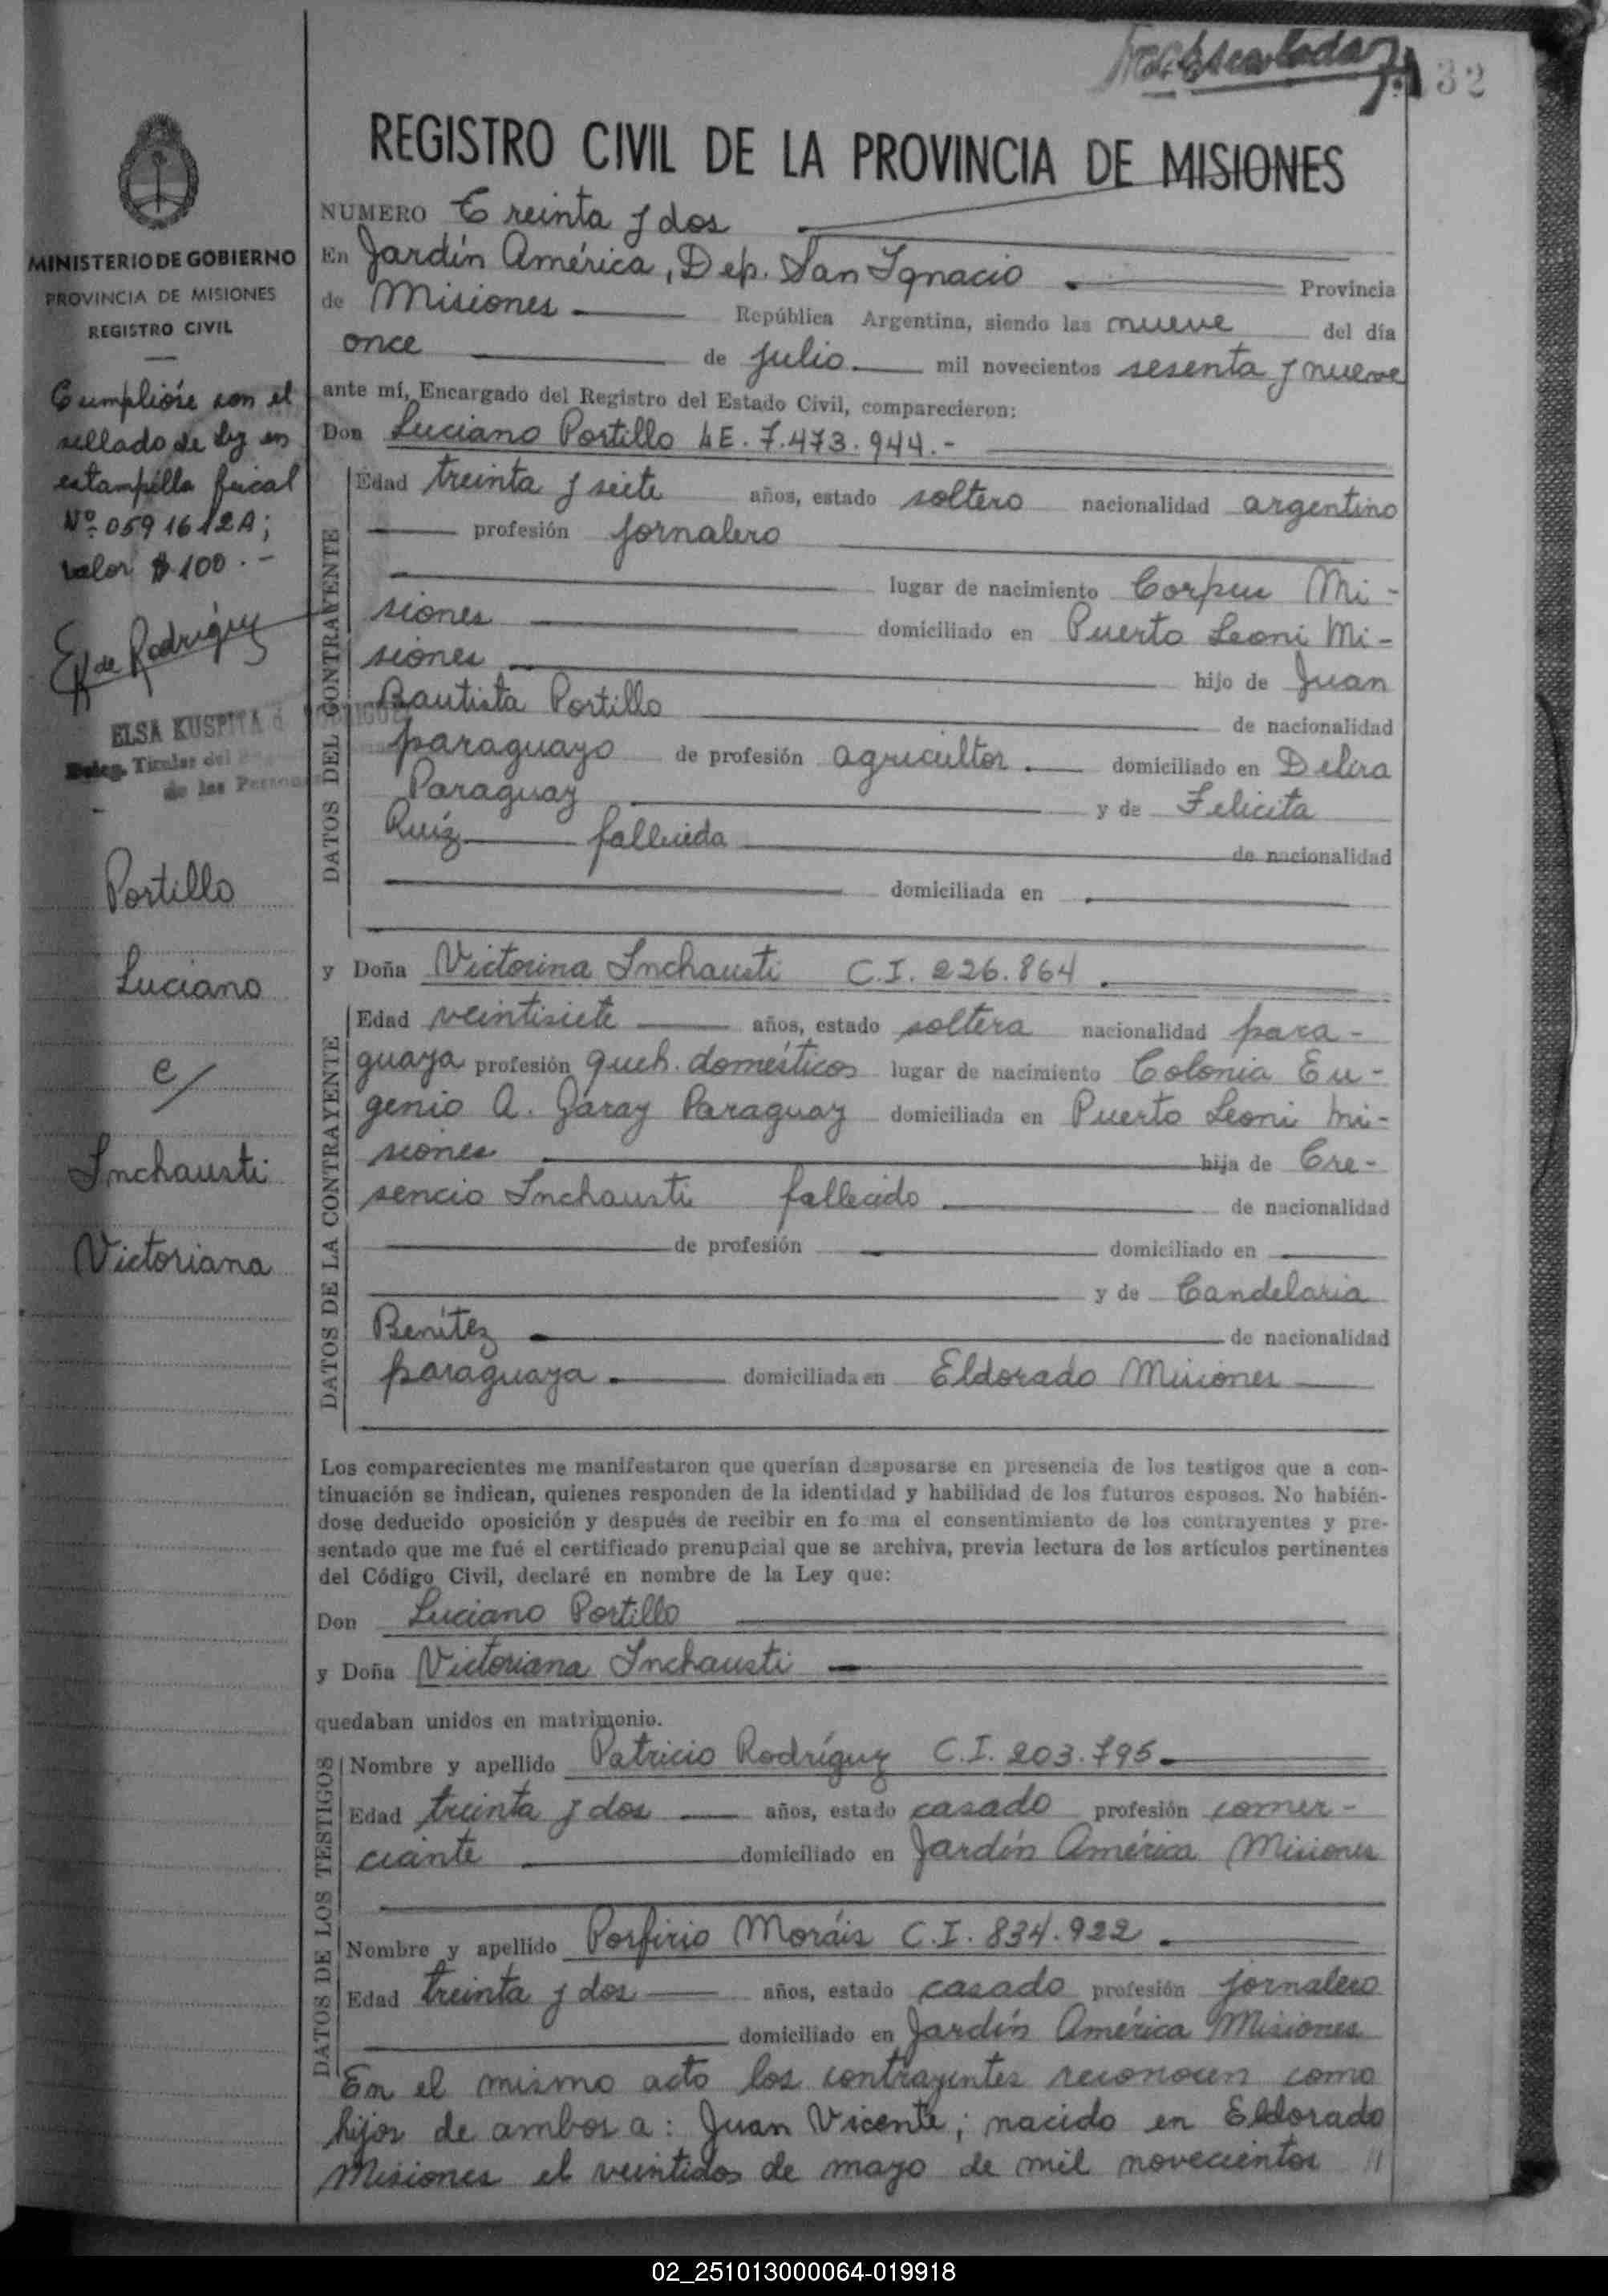 32
REGISTRO CIVIL DE LA PROVINCIA DE MISIONES
MINISTERIO DE GOBIERNO
PROVINCIA DE MISIONES
REGISTRO CIVIL
Cumplióse con el
sellado de ley en
estampilla fiscal
Nº 0591612A;
valor $ 100.-
E K de Rodríguez
ELSA KUSPITA d
Deleg. Titular del
de las Person
Portillo
Luciano
c/
Inchausti
Victoriana
NUMERO Treinta y dos
En Jardín América, Dep. San Ignacio Provincia
de Misiones República Argentina, siendo las nueve del día
once de julio mil novecientos sesenta y nueve
ante mí, Encargado del Registro del Estado Civil, comparecieron:
Don Luciano Portillo LE. 7.473.944.-
DATOS DEL CONTRAYENTE
Edad treinta y siete años, estado soltero nacionalidad argentino
profesión jornalero
lugar de nacimiento Corpus Mi-
siones domiciliado en Puerto Leoni Mi-
siones hijo de Juan
Bautista Portillo de nacionalidad
paraguayo de profesión agricultor domiciliado en Delira
Paraguay y de Felicita
Ruíz fallecida de nacionalidad
domiciliada en
y Doña Victorina Inchausti C.I. 226.864
DATOS DE LA CONTRAYENTE
Edad veintisiete años, estado soltera nacionalidad para-
guaya profesión queh. domésticos lugar de nacimiento Colonia Eu-
genio A. Garay Paraguay domiciliada en Puerto Leoni Mi-
siones hija de Cre-
sencio Inchausti fallecido de nacionalidad
de profesión domiciliado en
y de Candelaria
Benítez de nacionalidad
paraguaya domiciliada en Eldorado Misiones
Los comparecientes me manifestaron que querían desposarse en presencia de los testigos que a con-
tinuación se indican, quienes responden de la identidad y habilidad de los futuros esposos. No habién-
dose deducido oposición y después de recibir en fo ma el consentimiento de los contrayentes y pre-
sentado que me fué el certificado prenupcial que se archiva, previa lectura de los artículos pertinentes
del Código Civil, declaré en nombre de la Ley que:
Don Luciano Portillo
y Doña Victoriana Inchausti
quedaban unidos en matrimonio.
DATOS DE LOS TESTIGOS
Nombre y apellido Patricio Rodríguez C.I. 203.795
Edad treinta y dos años, estado casado profesión comer-
ciante domiciliado en Jardín América Misiones
Nombre y apellido Porfirio Moráis C.I. 834.922
Edad treinta y dos años, estado casado profesión jornalero
domiciliado en Jardín América Misiones
En el mismo acto los contrayentes reconocen como
hijos de ambos a: Juan Vicente; nacido en Eldorado
Misiones el veintidos de mayo de mil novecientos //
02_251013000064-019918